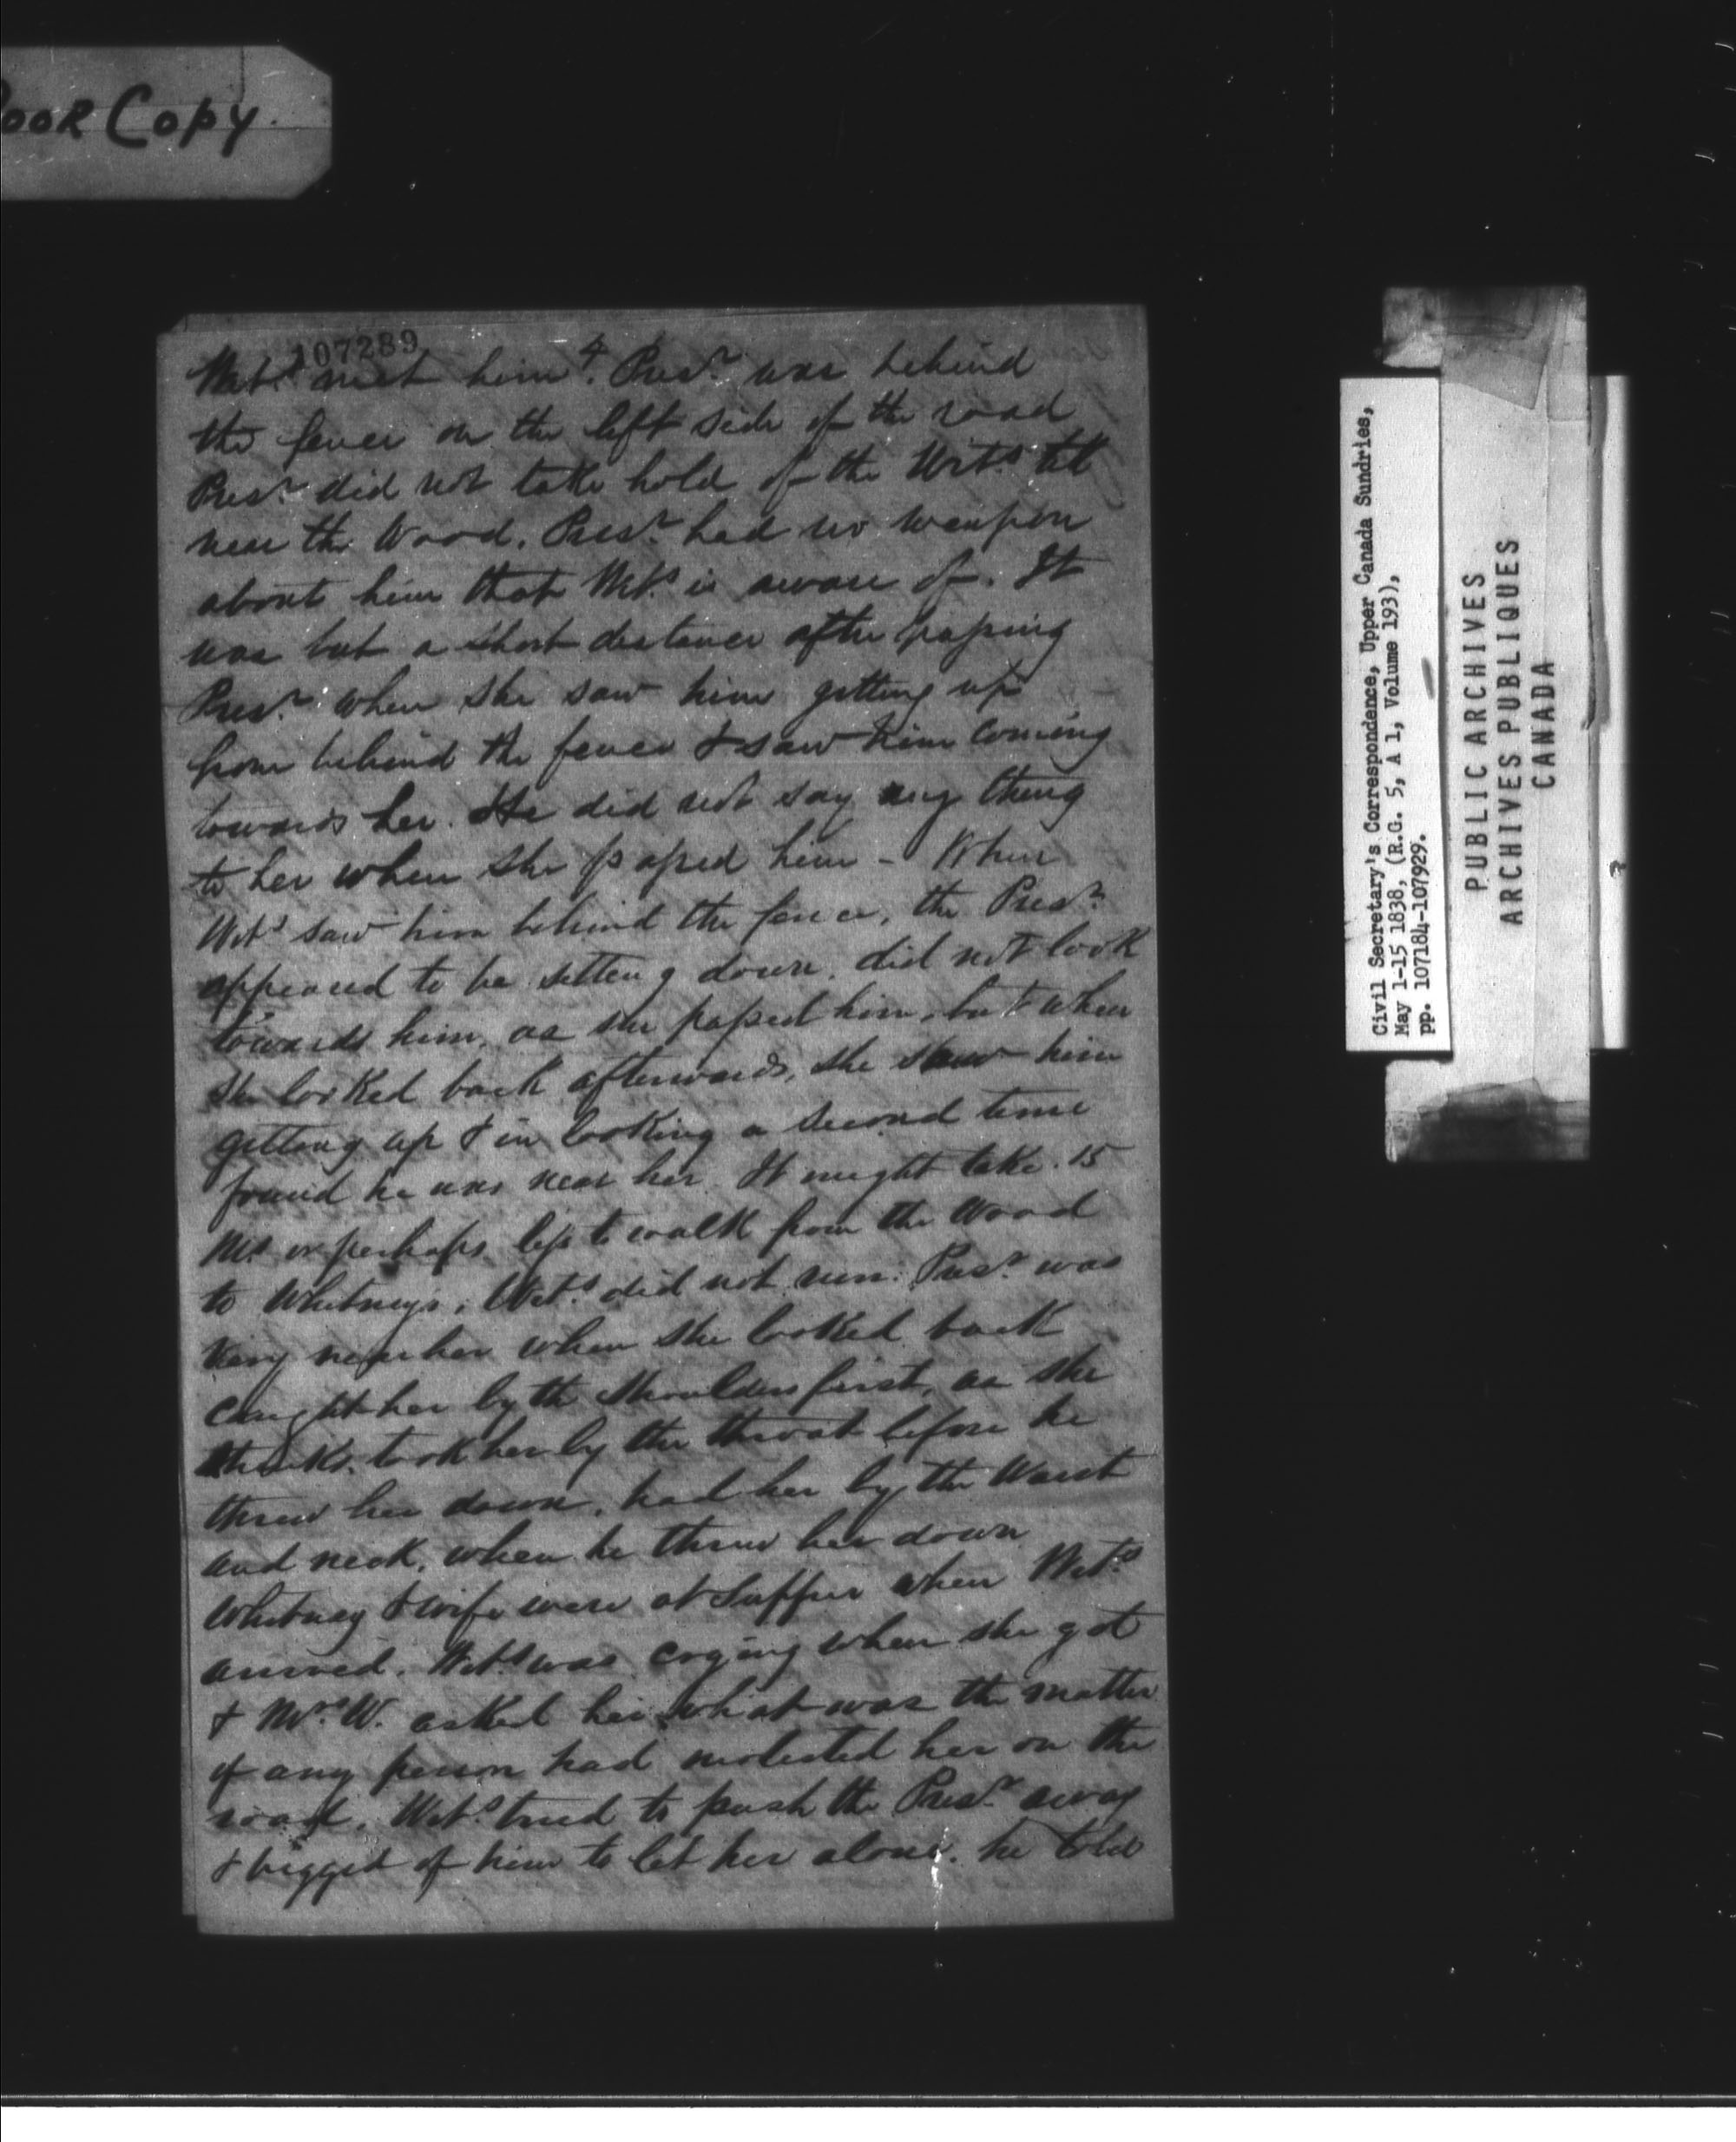 Poor Copy.
107289
4
Wits. met him. Prisr. was behind
the fence on the left side of the road
Prisr. did not take hold of the Wits. till
near the Wood. Prisr. had no weapon
about him that Wits. is aware of. It
was but a short distance after passing
Prisr. when she saw him getting up
from behind the fence & saw him coming
towards her. He did not say any thing
to her when she passed him - When
Wits. saw him behind the fence, the Prisr.
appeared to be sitting down. did not look
towards him, as she passed him, but when
she looked back afterwards, she saw him
getting up & in looking a second time
found he was near her. It might take 15
Mts. or perhaps less to walk from the Wood
to Whitneys. Wits. did not run. Prisr. was
very near her when she looked back
caught her by the Shoulders first, as she
thinks, took her by the throat before he
threw her down, had her by the Waist
and neck, when he threw her down
Whitney & wife were at Supper when Wits.
arrived. Wits. was crying when she got
& Mrs. W. asked her what was the matter
if any person had molested her on the
road. Wits. tried to push the Prisr. away
& begged of him to let her alone. he told
Civil Secretary's Correspondence, Upper Canada Sundries,
May 1-15 1838, (R.G. 5, A 1, Volume 193),
pp. 107184-107929.
PUBLIC ARCHIVES
ARCHIVES PUBLIQUES
CANADA